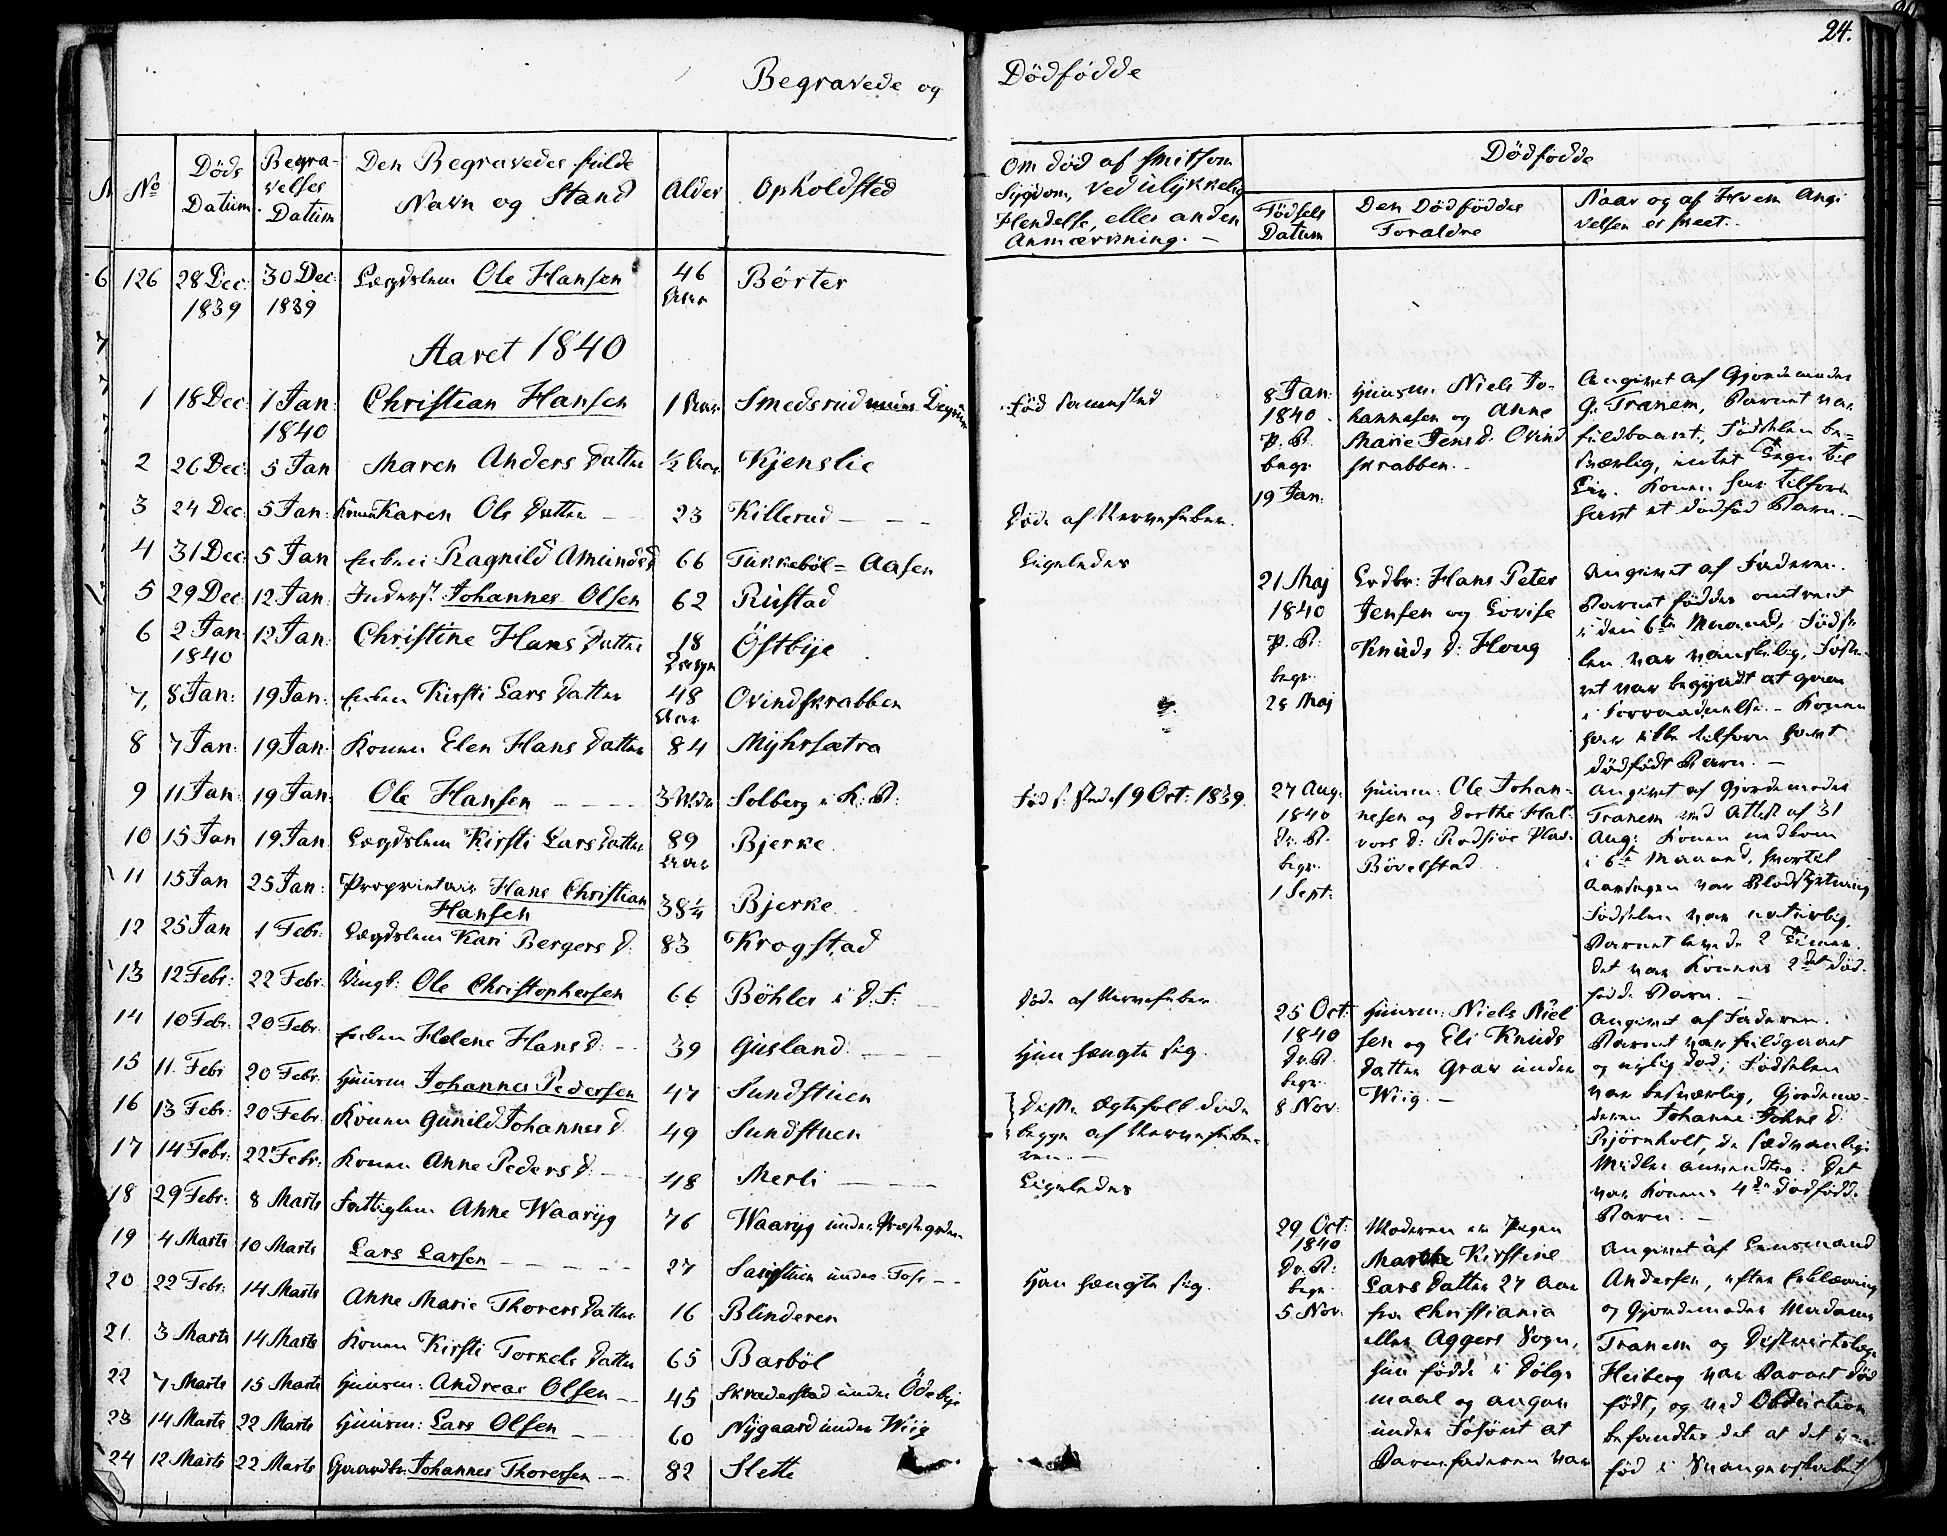 24.
Begravede og Dödfödde
No
Döds Datum
Begra-
velses
Datum
Den Begravedes fulde
Navn og Stand
Alder
Opholdsted
Om död af smitsom
Sygdom, ved ulykkelig
Hendelse, eller anden
Anmærkning. –
Dödfödde
Födsels
Datum
Den Dödföddes
Foræld​re
Naar og af Hvem Angi
velsen er skeet. -
126 28 Dec: 1839 30 Dec: 1839 Lægdslem Ole Hansen 46 Aar Börter
Aaret 1840
1 18 Dec: 1 Jan: 1840 Christian Hansen 1 Smedsrud
2 26 Dec: 5 Jan Maren Anders Datter ½ Aar Kjenslie
3 24 Dec: 5 Jan: Konen Karen Ols Datter 23 Killerud Döde af Nervefeber.
4 31 Dec: 5 Jan Enken Ragnild Amundsd 66 Tukkeböl = Aasen Ligeledes
5 29 Dec: 12 Jan: Inderst: Johannes Olsen 62 Rustad
6 2 Jan: 1840 12 Jan: Christine Hans Datter 18 Östbye
7, 8 Jan: 19 Jan: Enken Kirsti Lars Datter 48 Aar Ovindskrabben
8 7 Jan: 19 Jan: Konen Elen Hans Datter 84 Myhrsætra
9 11 Jan: 19 Jan: Ole Hansen 3 Solberg i K: 9 Oct: 1839.
10 15 Jan 19 Jan Lægdslem Kirsti Lars Datter 89 Aar Bjerke
11 15 Jan 25 Jan: Proprietair Hans Christian Hansen 38¼ Bjerke
12 25 Jan 1 Febr: Lægdslem Kari Bergers D: 83 Krogstad
13 12 Febr: 22 Febr: Ungk: Ole Christophersen 66 Böhler i Döde af Nervefeber
14 10 Febr: 20 Febr: Enken Helene Hans D: 39 Gusland Hun hængte sig.
15 11 Febr 20 Febr: Huusm Johannes Pedersen 47 Sundstuen Disse Ægtefolk döde
16 13 Febr: 20 Febr: Konen Gunild Johannes D 49 Sundstuen begge af Nervefebe-
ren. –
17 14 Febr: 22 Febr: Konen Anne Peders D: 48 Merli Ligeledes
18 29 Febr: 8 Marts Fattiglem Anne Waaryg 76 Waaryg under Præstegården
19 4 Marts 10 Marts Lars Larsen 27 under Foss Han hængte sig.
20 22 Febr: 14 Marts Anne Marie Thorers Datter 16 Blinderen
21. 3 Marts 14 Marts Konen Kirsti Torkels Datter 65 Barböl
22 7 Marts 15 Marts Huusm: Andreas Olsen 45 Skrederstad under Ödebye
23 14 Marts 22 Marts Huusm: Lars Olsen 60 Nygaard under Wiig
24 12 Marts 22 Marts Gaardbr: Johannes Thoresen 82 Slette
8 Jan:
1840.
begr.
19 Jan.
Huusm. Niels Jo-
hannesen og Anne
Marie Jens D: Ovind
skrabben. –
Angivet af Gjordemoder
Tranem, Barnet var
fuldbaaret, Födselen be-
sværlig, intet Tegn til
Liv. Konen har tilforn
havt et dödfód Barn. –
21 Maj
1840
begr.
28 Maj
Grdbr: Hans Peter
Jensen og Lovise
Knuds D: Houg
Angivet af Faderen.
Barnet föddes omtrent
i den 6te Maaned, Födse
len var vanskelig, Foste-
ret var begyndt at gaae
i Forraadnelse. – Konen
har ikke tilforn havt
dödfödt Barn. –
27 Aug:
1840
begr.
1 Sept:
Huusm: Ole Johan-
nesen og Dorthe Hal-
vors D: Plad:
Bövelstad
Angivet af Gjordemoder
Tranem ved Attest af 31
Aug: Konen nedkom
i 6te Maaned, hvortil
Aarsagen var Blodstyrtning
Födselen var naturlig,
Barnet levede 2 Timer.
Det var Konens 2det död-
fødde Barn. –
25 Oct:
1840
begr.
8 Nov:
Huusm: Niels Niel
sen og Eli Knuds
Datter Grav under
Wiig. –
Angivet af Faderen.
Barnet var fuldbaaret
og nylig död, Födselen
var besværlig, Gjordemo-
deren Johanne Johns D:
Björnholt, de sædvanlige
Midler anvendtes. Det
var Konens 4de dödfödde
Barn. –
29 Oct:
1840
begr.
5 Nov:
Moderen er Pigen
Marthe Kirstine
Lars Datter 27 Aar
fra Christiania
eller Aggers Sogn,
hun födde i Dölgs
maal og angav
under Forhöret at
Barnefaderen var
Angivet af Lensmand
Andersen, efter Erklæring
og Gjordemoder Madame
Tranem og Districtslæge
Heiberg var Barnet død
født, og ved Obduction
befandtes det at det var
fød i Svangerskabet